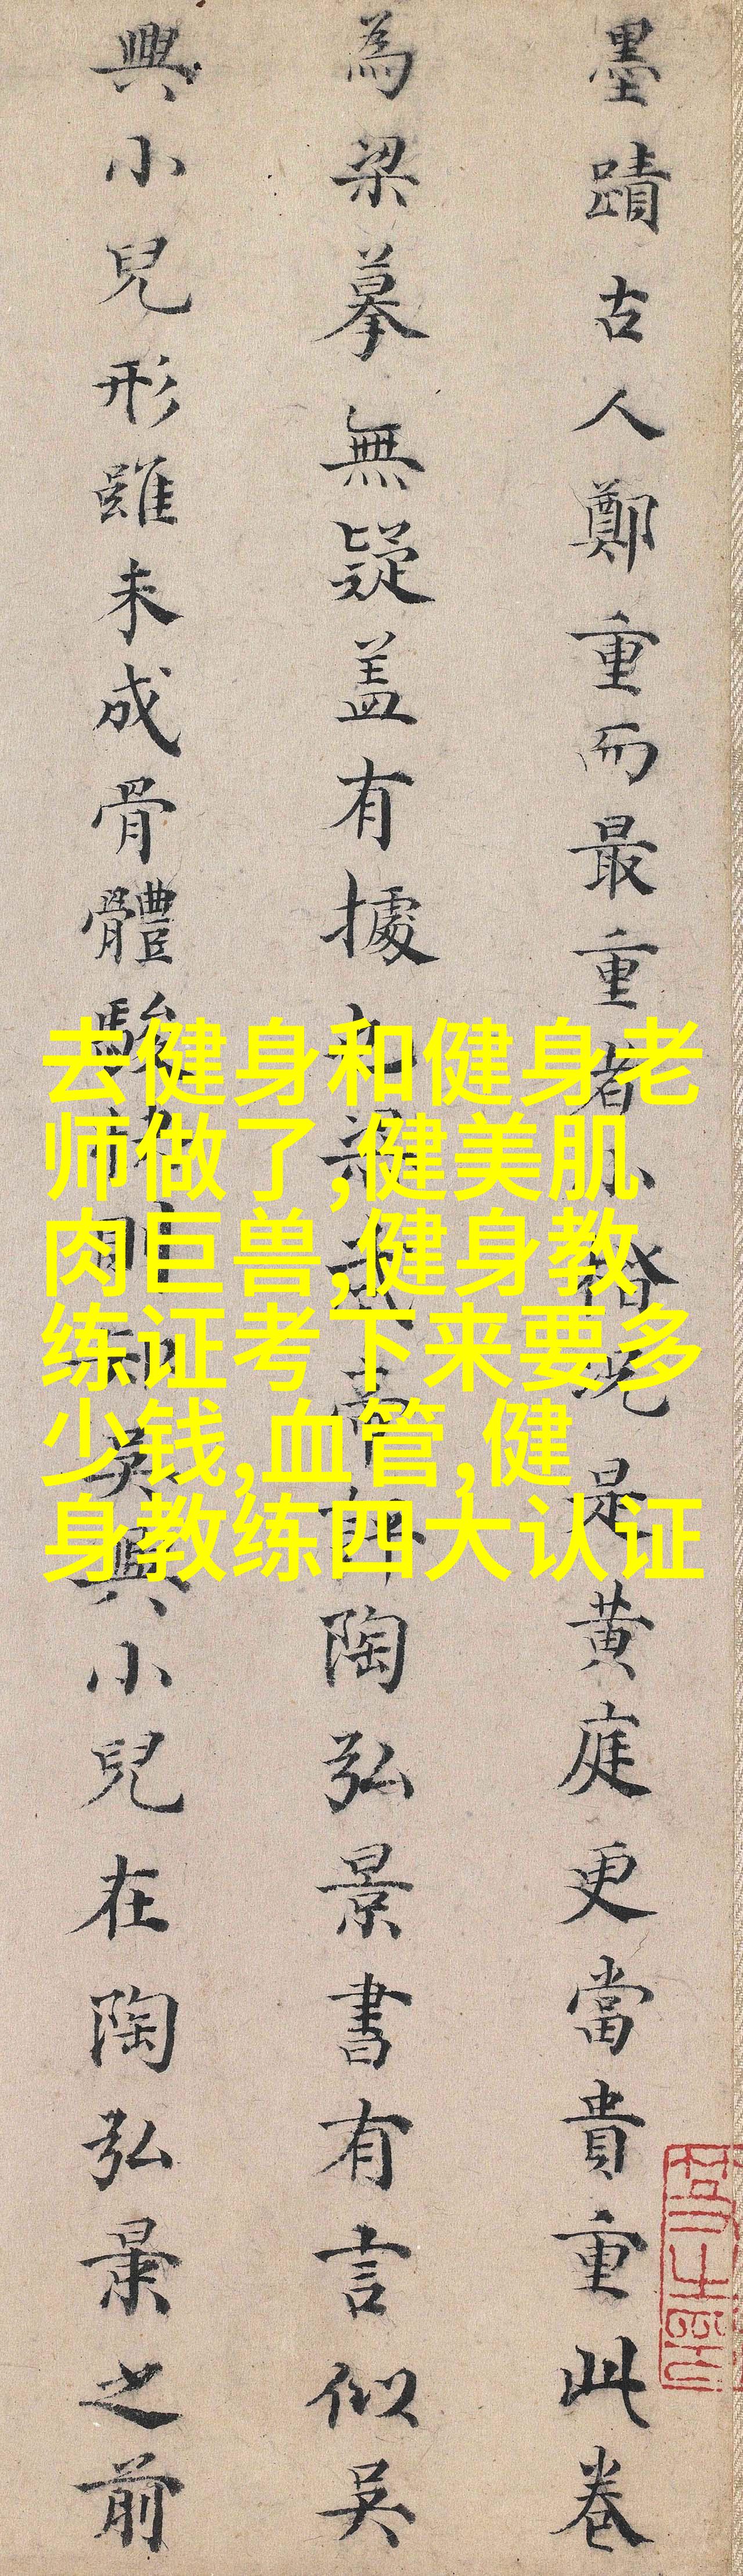 墨蹟古人鄭重而最重者小楷况是黄庭更當貴重此卷
為梁摹無疑盖有據也梁武帝評陶弘景書有言似吳
興小兒形雖未成骨體駿快則知吳興小兒在陶弘景之前
去健身和健身老
师做了,健美肌
肉巨兽,健身教
练证考下来要多
少钱,血管,健
身教练四大认证